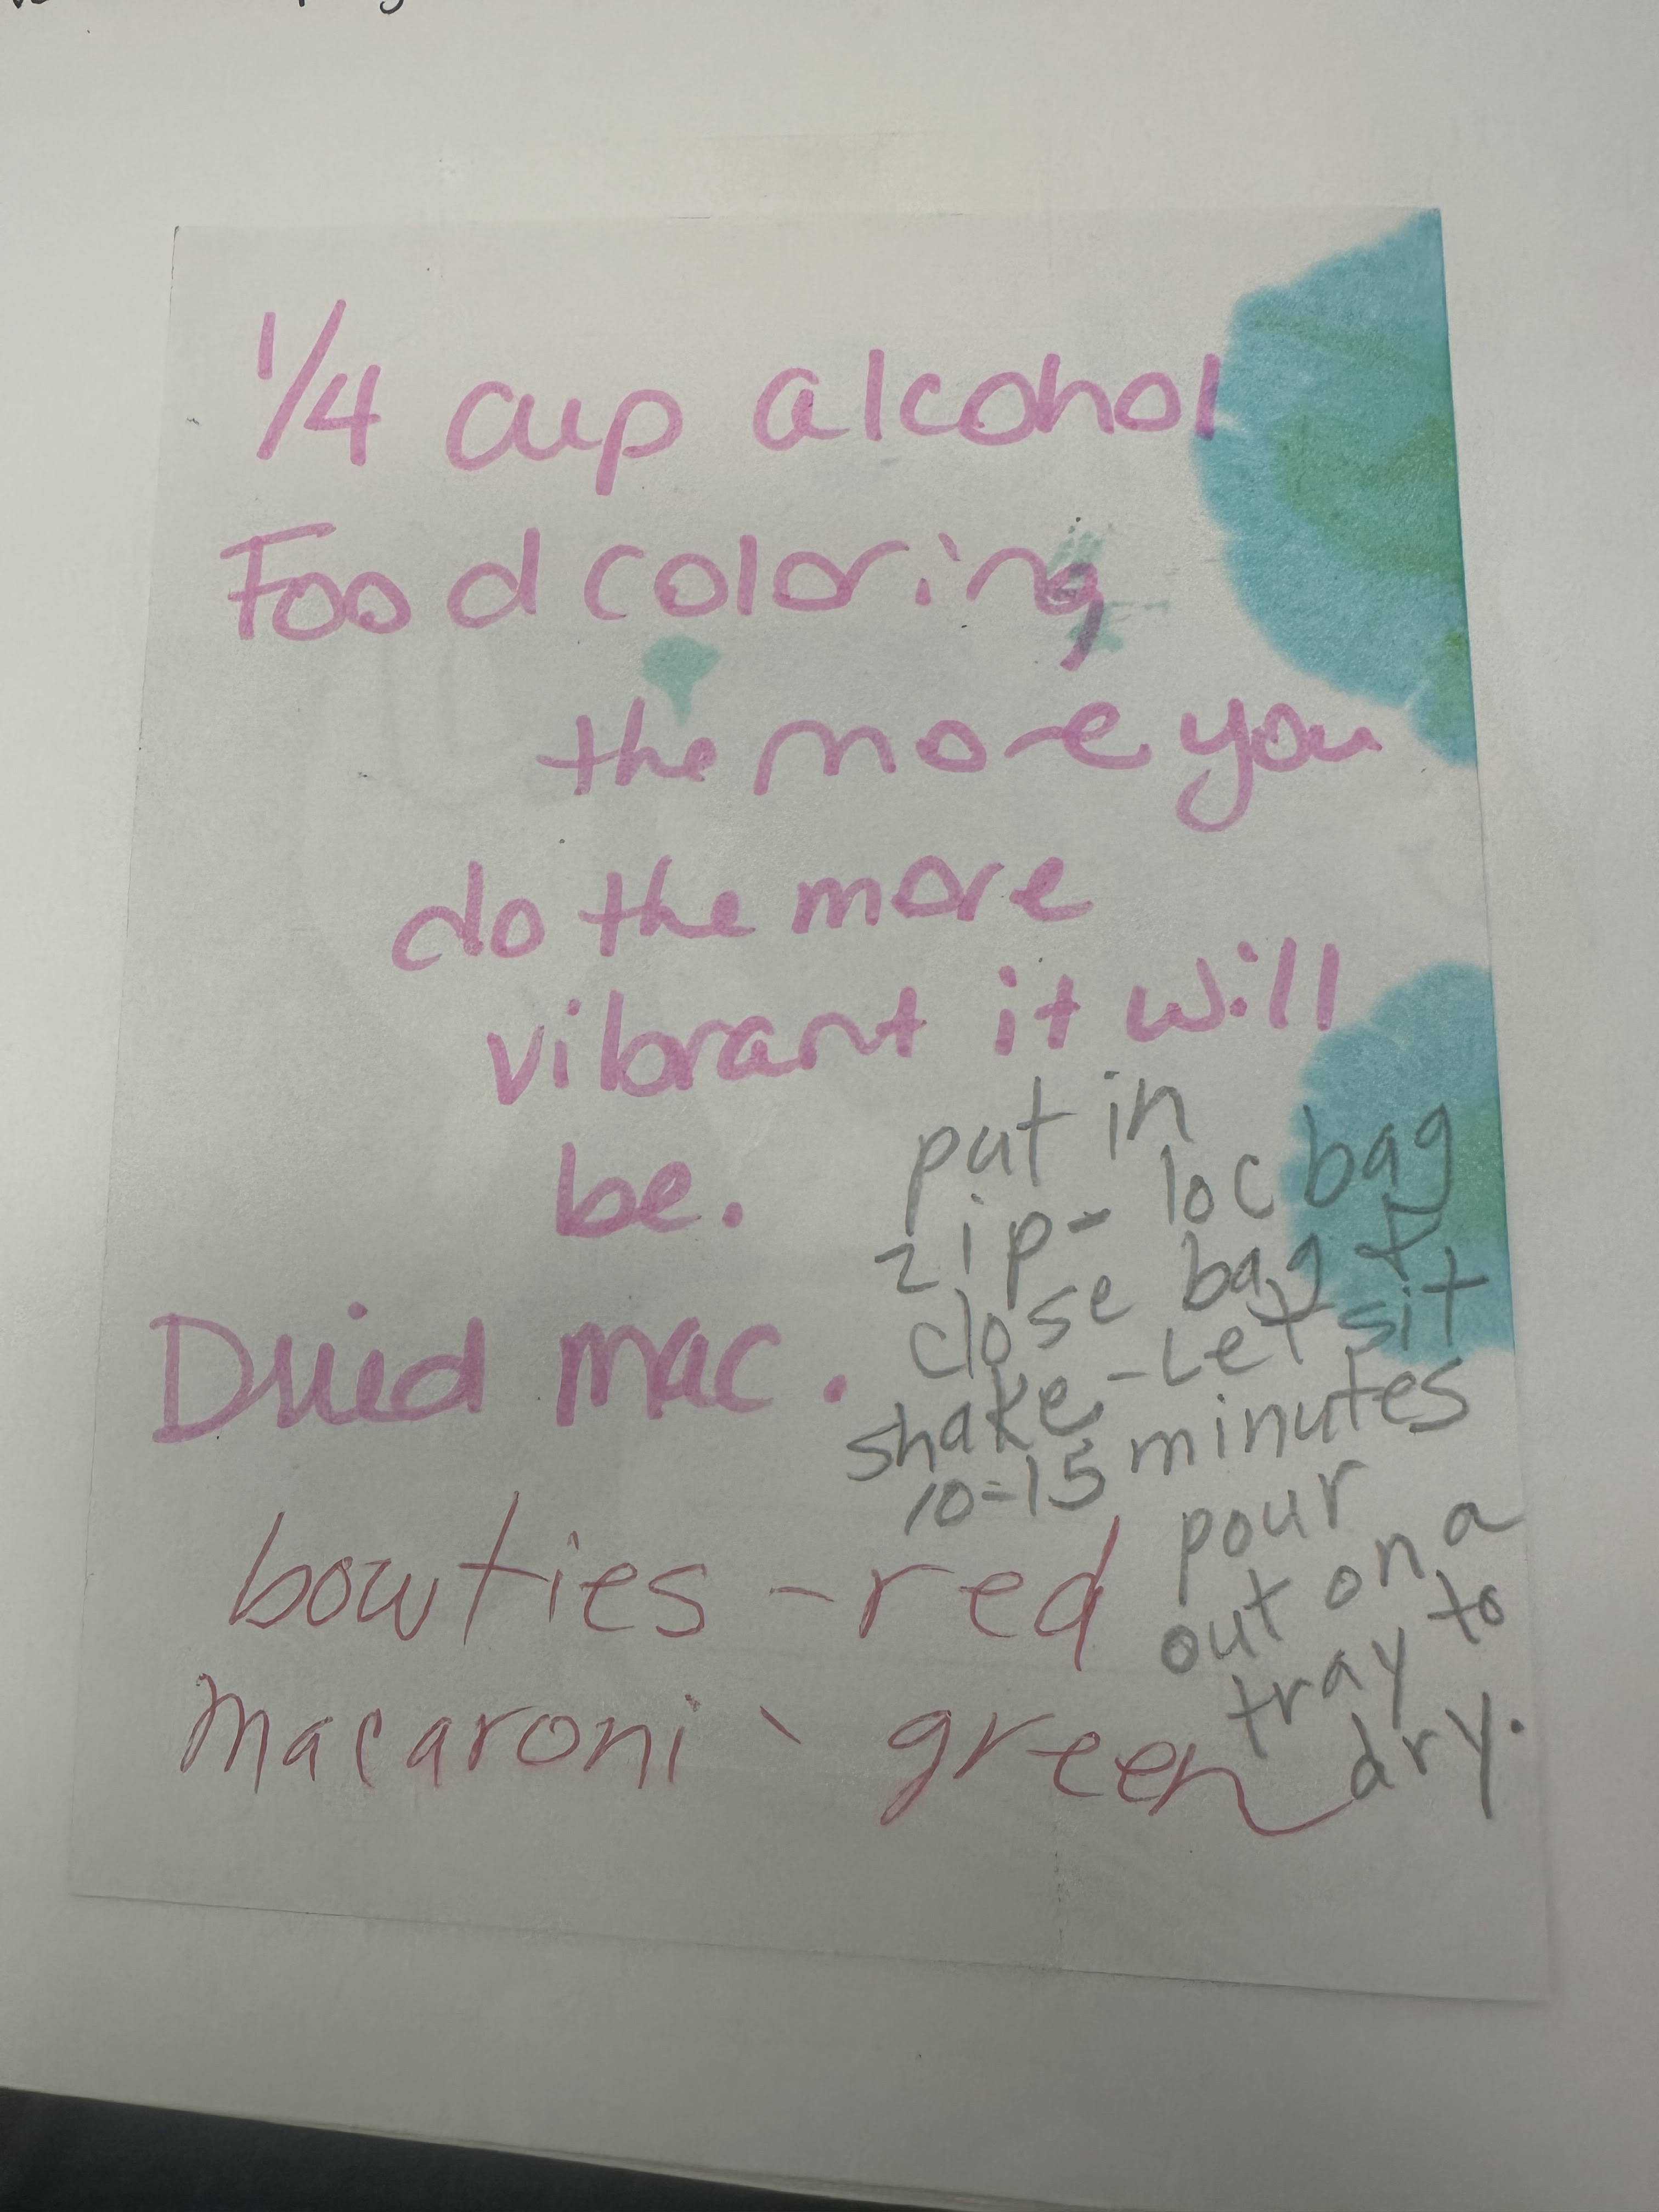 1/4 cup alcohol
Food coloring
the more you
do the more
vibrant it will
be.
Dried mac.
put in
zip-loc bag
close bag +
shake - Let sit
10-15 minutes
pour
out on a
tray to
dry.
bowties - red
macaroni - green